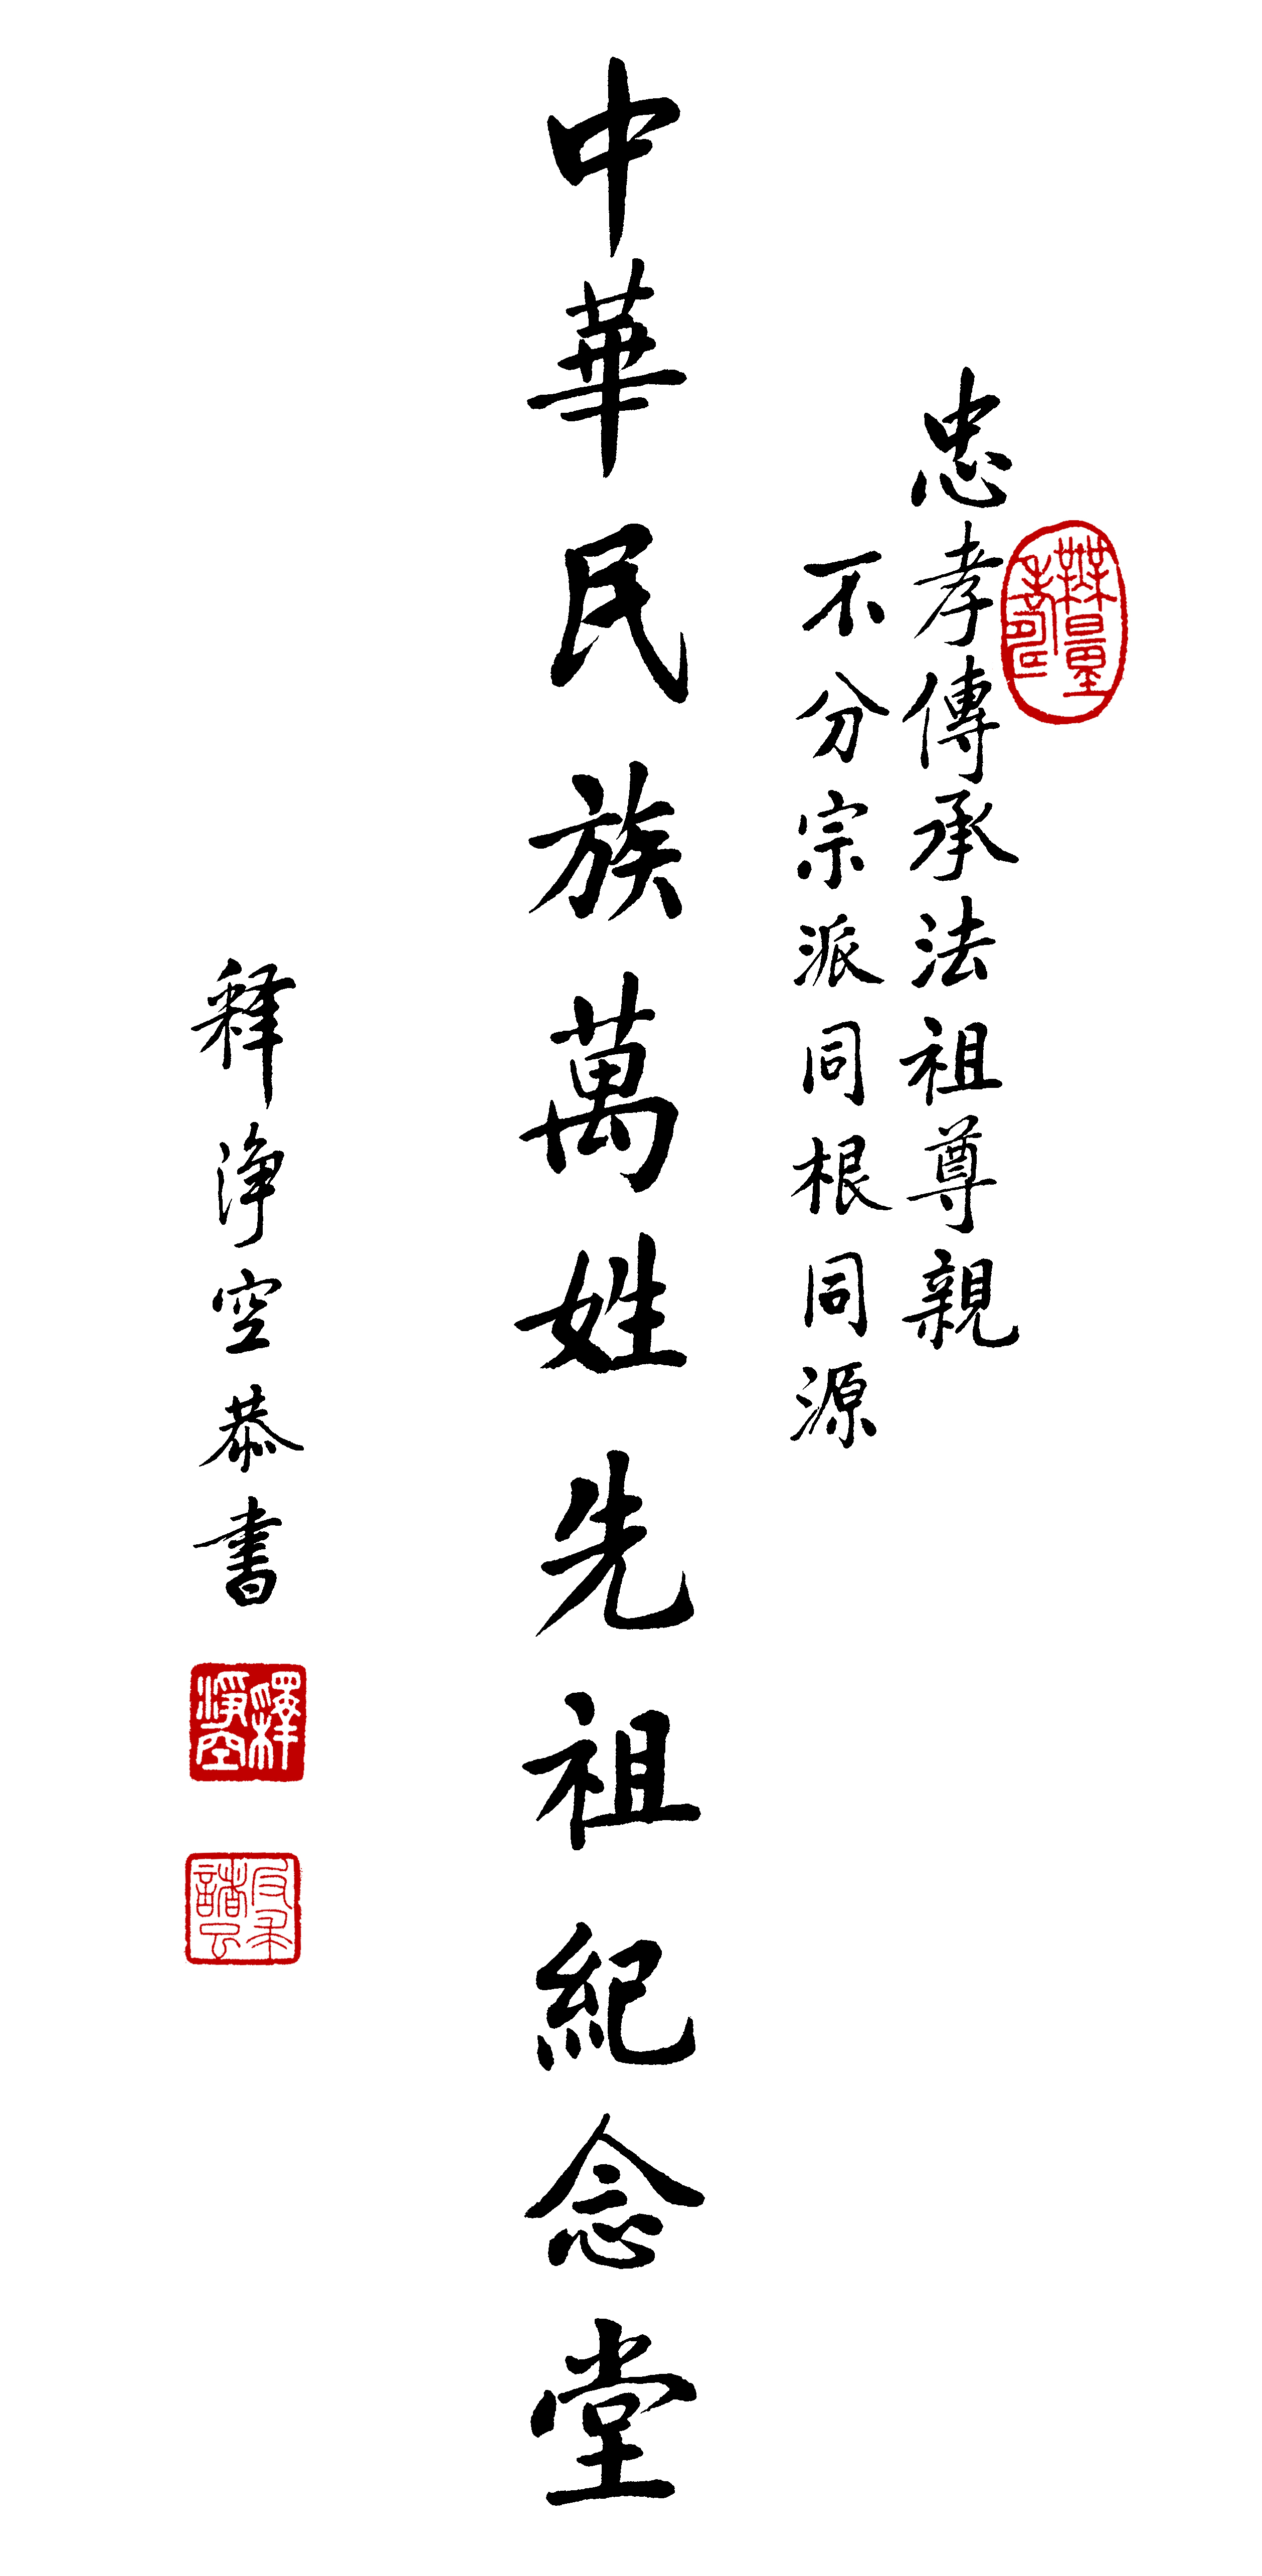 忠孝傳承法祖尊親
不分宗派同根同源
中華民族萬姓先祖紀念堂
釋淨空恭書
無量壽
釋淨空